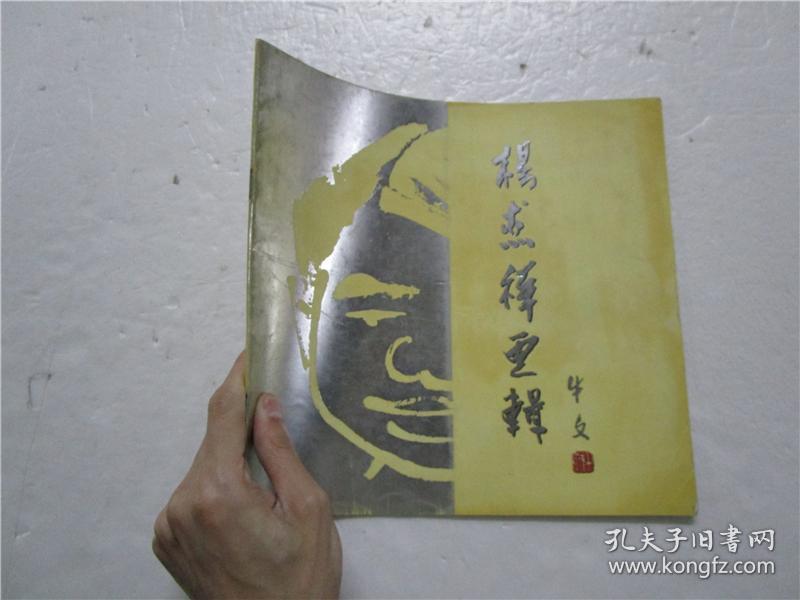 楊焘祥画輯
牛文
孔夫子旧書网
www.kongfz.com